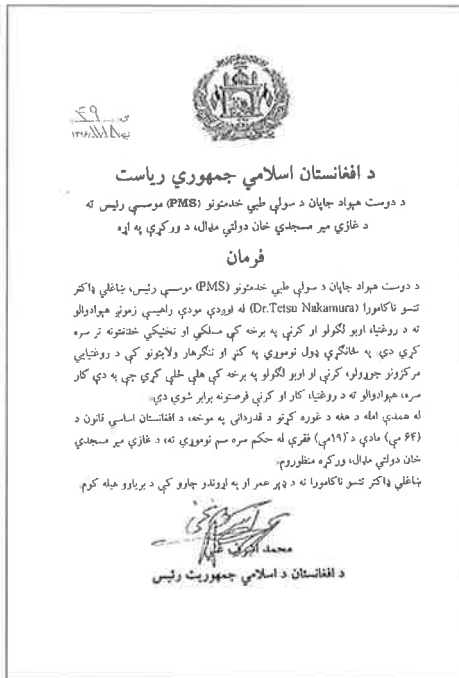 گڼه: ۴۹
نېټه: ۱۳۹۶/۱۱/۱۸
د افغانستان اسلامي جمهوري ریاست
د دوست هېواد جاپان د سولې طبي خدمتونو (PMS) موسسې رئیس ته
د غازي میر مسجدي خان دولتي مډال، د ورکړې په اړه
فرمان
د دوست هېواد جاپان د سولې طبي خدمتونو (PMS) موسسې رئیس، ښاغلي ډاکتر
تتسو ناکامورا (Dr.Tetsu Nakamura) له اوږدې مودې راهیسې زمونږ هېوادوالو
ته د روغتیا، اوبو لګولو او کرنې په برخه کې مسلکي او تخنیکي خدمتونه تر سره
کړي دي. په ځانګړې ډول نوموړي په کنړ او ننګرهار ولایتونو کې د روغتیايي
مرکزونو جوړولو، کرنې او اوبو لګولو په برخه کې هلې ځلې کړي چې په دې کار
سره، هېوادوالو ته د روغتیا، کار او کرنې فرصتونه برابر شوي دي.
له همدې امله د هغه د غوره کړنو د قدردانۍ په موخه، د افغانستان اساسي قانون د
(۶۴ مې) مادې د (۱۹مې) فقرې له حکم سره سم نوموړي ته، د غازي میر مسجدي
خان دولتي مډال، ورکړه منظوروم.
ښاغلي ډاکتر تتسو ناکامورا ته د ډېر عمر او په اړوندو چارو کې د بریاوو هیله کوم.
محمد اشرف غني
د افغانستان د اسلامي جمهوریت رئیس